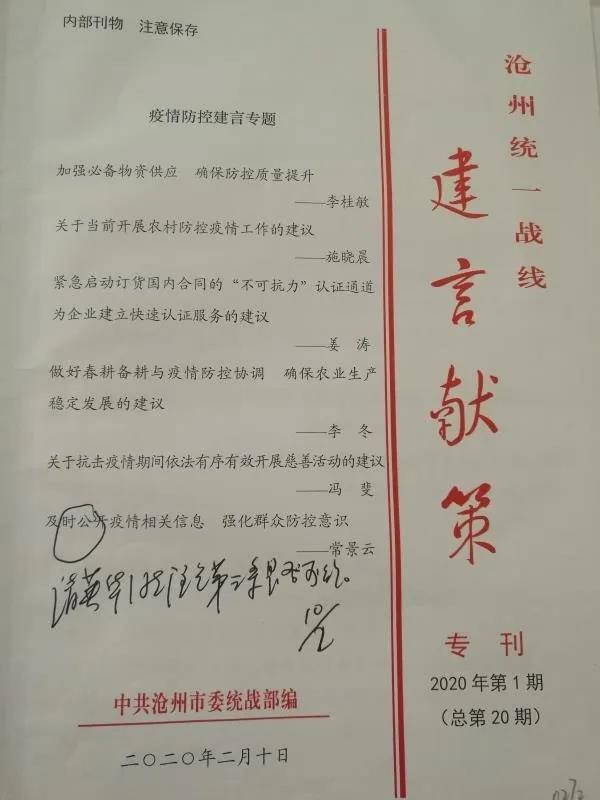 内部刊物 注意保存
沧州统一战线
建言献策
专刊
2020年第1期
(总第20期)
疫情防控建言专题
加强必备物资供应 确保防控质量提升
——李桂敏
关于当前开展农村防控疫情工作的建议
——施晓晨
紧急启动订货国内合同的“不可抗力”认证通道
为企业建立快速认证服务的建议
——姜 涛
做好春耕备耕与疫情防控协调 确保农业生产
稳定发展的建议
——李 冬
关于抗击疫情期间依法有序有效开展慈善活动的建议
——冯 斐
及时公开疫情相关信息 强化群众防控意识
——常景云
中共沧州市委统战部编
二〇二〇年二月十日